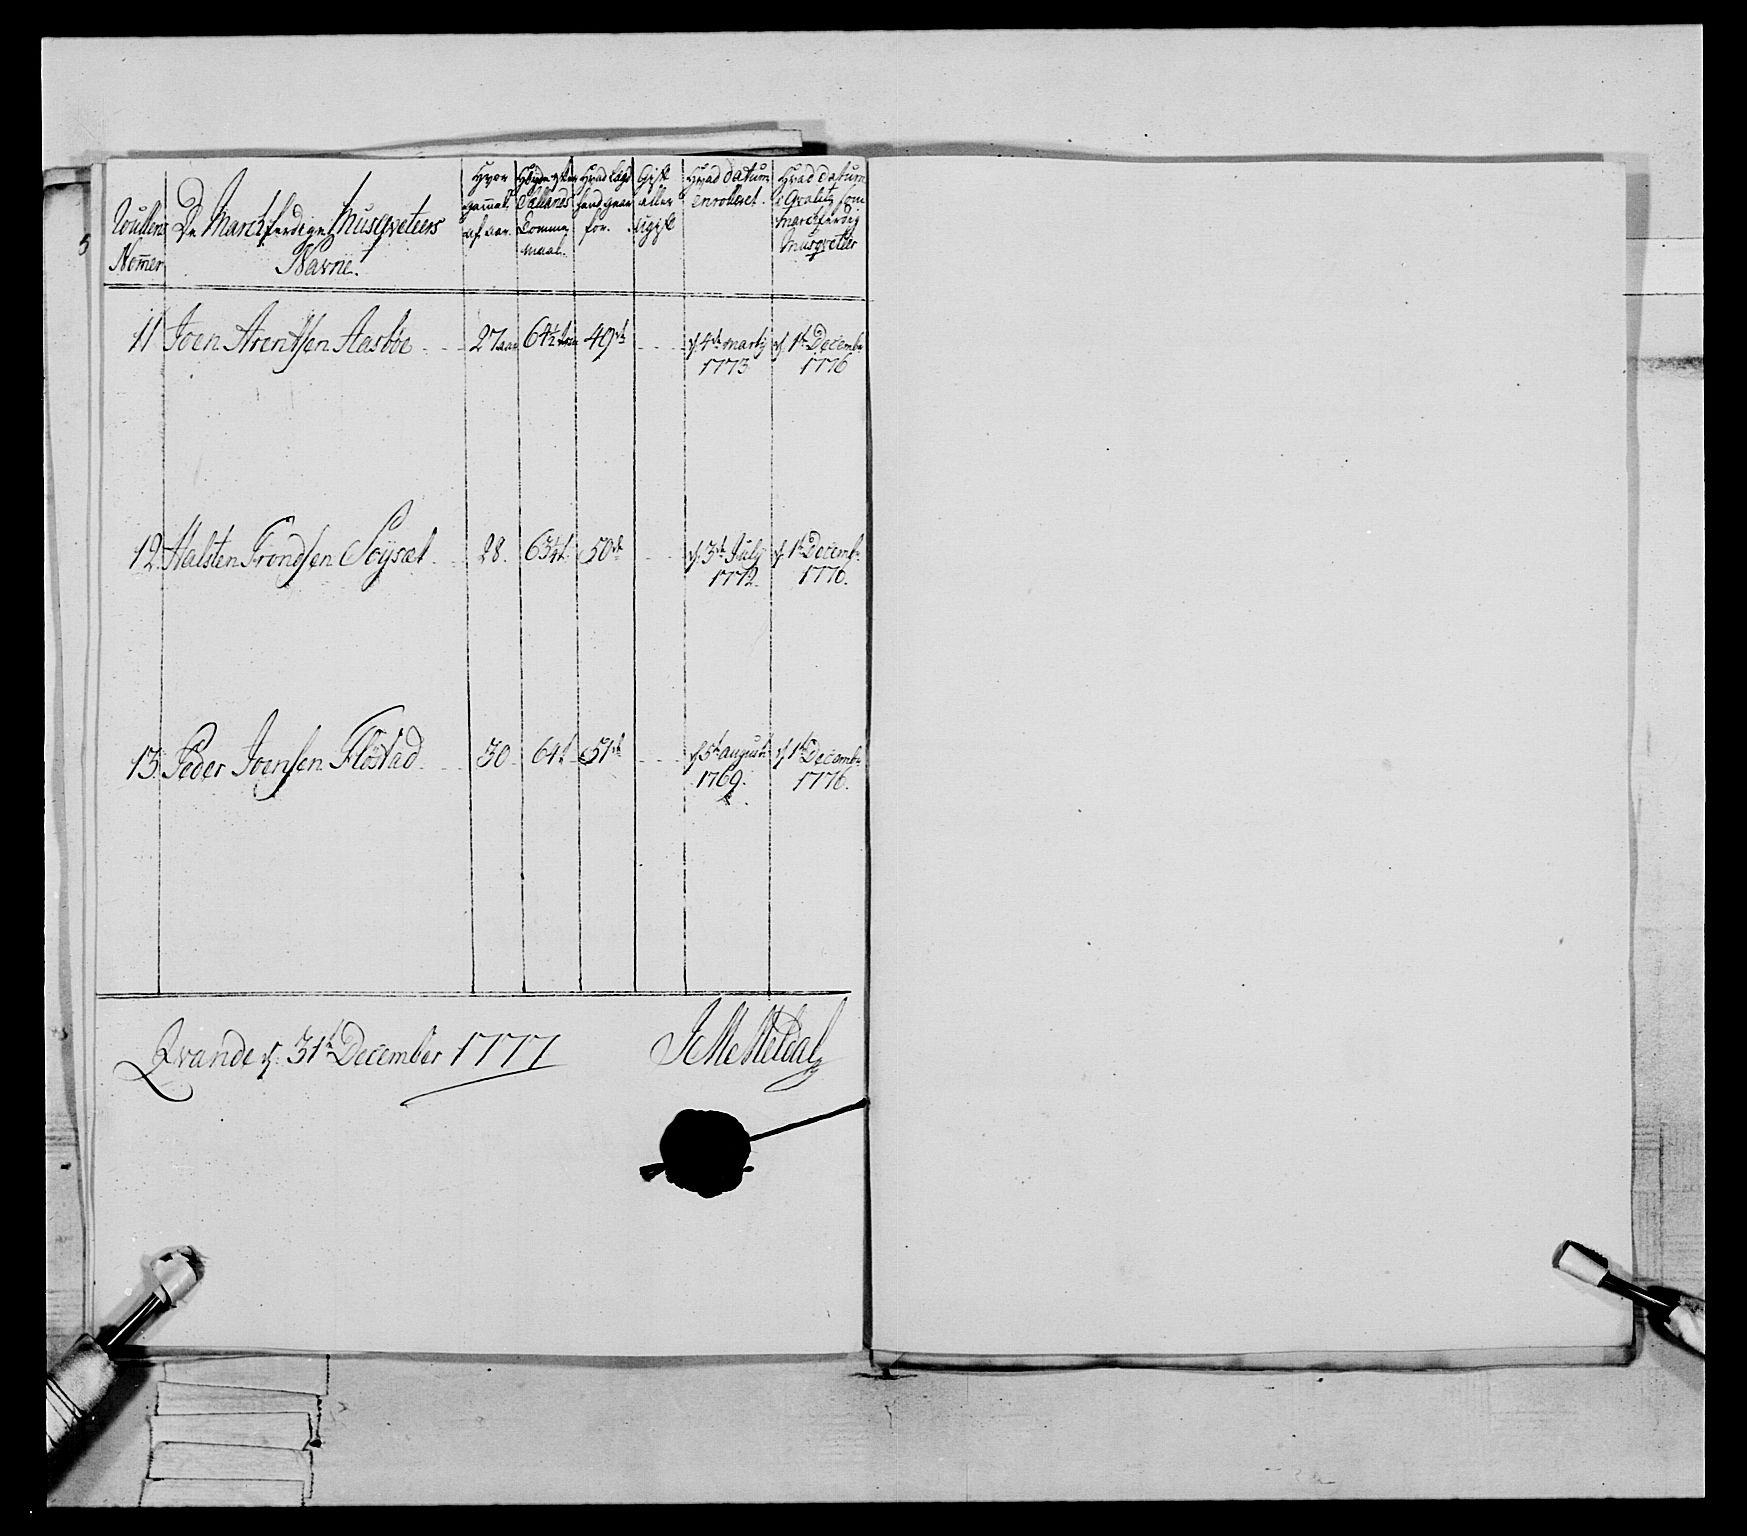 Rullens
Nomer
De Marchferdige Musqveteers
Navne.
Hvor
gammel
af aar.
Høyde efter
Sallands
Comme
maal.
Hvad Lægd
hand gaar
for.
Gift
eller
ugift
Hvad datum
enrolleret.
Hvad datum
i Qvalitz som
marchferdig
Musqveteer
11 Joen Arentsen Aasbøe 27 aar 64½ 49de d. 4de martÿ 1773 d. 1te Decembr 1776
12 Halsten Trondsen Søÿset 28. 63¼ t. 50de d. 3de Julÿ 1772. d. 1te Decembr. 1776.
13. Peder Joensen Fløstad 30 64 t. 51de d. 5te august 1769. d. 1te Decembr 1776.
Qvande d. 31te December 1777
Meldal
5